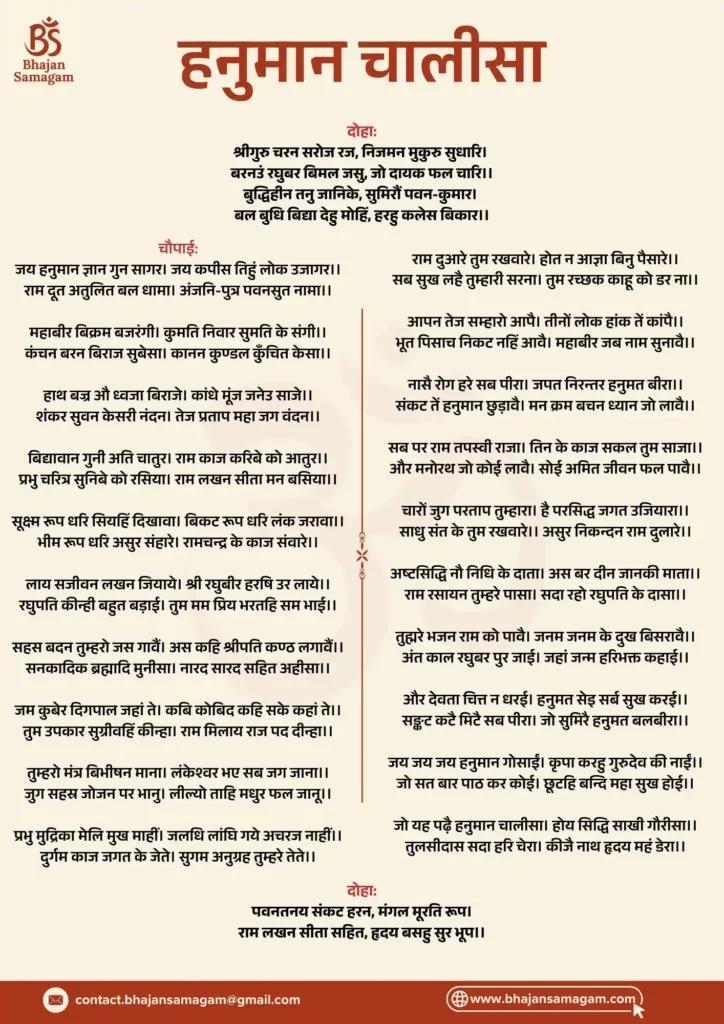 Bhajan
Samagam
हनुमान चालीसा
दोहाः
श्रीगुरु चरन सरोज रज, निजमन मुकुरु सुधारि।
बरनउं रघुबर बिमल जसु, जो दायक फल चारि।।
बुद्धिहीन तनु जानिके, सुमिरौं पवन-कुमार।
बल बुधि बिद्या देहु मोहिं, हरहु कलेस बिकार।।
चौपाई:
जय हनुमान ज्ञान गुन सागर। जय कपीस तिहुं लोक उजागर।।
राम दूत अतुलित बल धामा। अंजनि-पुत्र पवनसुत नामा।।
महाबीर बिक्रम बजरंगी। कुमति निवार सुमति के संगी।।
कंचन बरन बिराज सुबेसा। कानन कुण्डल कुँचित केसा।।
हाथ बज्र औ ध्वजा बिराजे। कांधे मूंज जनेउ साजे।।
शंकर सुवन केसरी नंदन। तेज प्रताप महा जग वंदन।।
बिद्यावान गुनी अति चातुर। राम काज करिबे को आतुर।।
प्रभु चरित्र सुनिबे को रसिया। राम लखन सीता मन बसिया।।
सूक्ष्म रूप धरि सियहिं दिखावा। बिकट रूप धरि लंक जरावा।।
भीम रूप धरि असुर संहारे। रामचन्द्र के काज संवारे।।
लाय सजीवन लखन जियाये। श्री रघुबीर हरषि उर लाये।।
रघुपति कीन्ही बहुत बड़ाई। तुम मम प्रिय भरतहि सम भाई।।
सहस बदन तुम्हरो जस गावैं। अस कहि श्रीपति कण्ठ लगावैं।।
सनकादिक ब्रह्मादि मुनीसा। नारद सारद सहित अहीसा।।
जम कुबेर दिगपाल जहां ते। कबि कोबिद कहि सके कहां ते।।
तुम उपकार सुग्रीवहिं कीन्हा। राम मिलाय राज पद दीन्हा।।
तुम्हरो मंत्र बिभीषन माना। लंकेश्वर भए सब जग जाना।।
जुग सहस्र जोजन पर भानु। लील्यो ताहि मधुर फल जानू।।
प्रभु मुद्रिका मेलि मुख माहीं। जलधि लांघि गये अचरज नाहीं।।
दुर्गम काज जगत के जेते। सुगम अनुग्रह तुम्हरे तेते।।
राम दुआरे तुम रखवारे। होत न आज्ञा बिनु पैसारे।।
सब सुख लहै तुम्हारी सरना। तुम रच्छक काहू को डर ना।।
आपन तेज सम्हारो आपै। तीनों लोक हांक तें कांपै।।
भूत पिसाच निकट नहिं आवै। महाबीर जब नाम सुनावै।।
नासै रोग हरे सब पीरा। जपत निरन्तर हनुमत बीरा।।
संकट तें हनुमान छुड़ावै। मन क्रम बचन ध्यान जो लावै।।
सब पर राम तपस्वी राजा। तिन के काज सकल तुम साजा।।
और मनोरथ जो कोई लावै। सोई अमित जीवन फल पावै।।
चारों जुग परताप तुम्हारा। है परसिद्ध जगत उजियारा।।
साधु संत के तुम रखवारे।। असुर निकन्दन राम दुलारे।।
अष्टसिद्धि नौ निधि के दाता। अस बर दीन जानकी माता।।
राम रसायन तुम्हरे पासा। सदा रहो रघुपति के दासा।।
तुह्मरे भजन राम को पावै। जनम जनम के दुख बिसरावै।।
अंत काल रघुबर पुर जाई। जहां जन्म हरिभक्त कहाई।।
और देवता चित्त न धरई। हनुमत सेइ सर्ब सुख करई।।
सङ्कट कटै मिटै सब पीरा। जो सुमिरै हनुमत बलबीरा।।
जय जय जय हनुमान गोसाईं। कृपा करहु गुरुदेव की नाईं।।
जो सत बार पाठ कर कोई। छूटहि बन्दि महा सुख होई।।
जो यह पढ़ै हनुमान चालीसा। होय सिद्धि साखी गौरीसा।।
तुलसीदास सदा हरि चेरा। कीजै नाथ हृदय महं डेरा।।
दोहाः
पवनतनय संकट हरन, मंगल मूरति रूप।
राम लखन सीता सहित, हृदय बसहु सुर भूप।।
contact.bhajansamagam@gmail.com
www.bhajansamagam.com